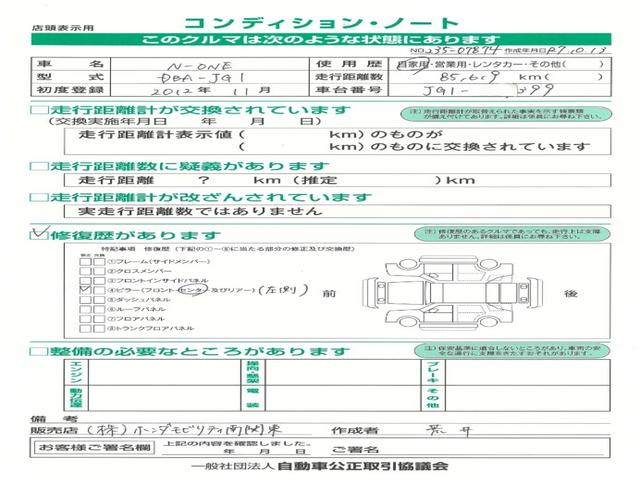 店頭表示用
コンディション・ノート
このクルマは次のような状態にあります
NO.235-07874 作成年月日 R7.10.13
車名 N-ONE 使用歴 自家用・営業用・レンタカー・その他( )
型式 DBA-JG1 走行距離数 85,619 km( )
初度登録 2012年11月 車台番号 JG1- 399
□走行距離計が交換されています
(交換実施年月日 年 月 日)
注)走行距離計が取替えられた事実を示す帳票類が備え付けてあります。詳細は係員にお尋ね下さい。
走行距離計表示値( km)のものが
( km)のものに交換されています
□走行距離数に疑義があります
走行距離 ? km(推定 )km
□走行距離計が改ざんされています
実走行距離数ではありません
□修復歴があります
注)修復歴のあるクルマであっても、走行上は支障ありません。詳細は係員にお尋ね下さい。
特記事項 修復歴(下記の①~⑧に当たる部分の修正及び交換歴)
修正 交換
①フレーム(サイドメンバー)
②クロスメンバー
③フロントインサイドパネル
④ピラー(フロント・センター及びリアー)(左側)
⑤ダッシュパネル
⑥ルーフパネル
⑦フロアパネル
⑧トランクフロアパネル
前
後
□整備の必要なところがあります
注)保安基準に適合しないところがあり、車両の安全な運行に支障をきたすおそれがあります。
エンジン
操向・懸架
ブレーキ
動力伝達
電装
その他
備考
販売店 (株)ホンダモビリティ南関東 作成者 荒井
お客様ご署名欄 上記の内容を確認しました。
年 月 日 ご署名
一般社団法人 自動車公正取引協議会